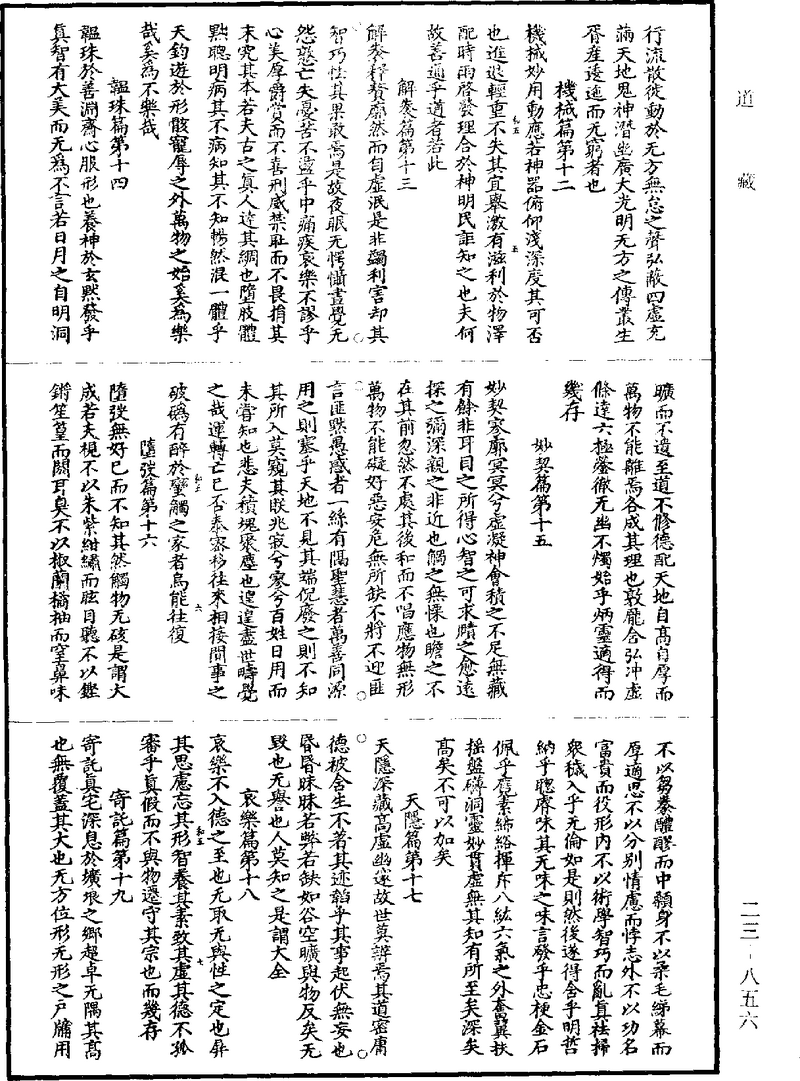 道藏
行流散徙動於无方無怠之聲弘蔽四虛充
滿天地鬼神潛幽廣大光明无方之傳叢生
胥產逶迤而无窮者也
機械篇第十二
機械妙用動應若神器俯仰淺深度其可否
也進退輕重不失其宜舉激有滋利於物澤
配時雨啓發理合於神明民詎知之也夫何
故善通乎道者若此
解褩篇第十三
解褩釋贅廓然而自虛泯是非蠲利害却其
智巧怯其果敢焉是故夜眠无愕懾晝覺无
怨憝亡失憂苦不盪乎中痛疾哀樂不謬乎
心美厚爵賞而不喜刑威禁耻而不畏捐其
末究其本若夫古之真人達其綢也墮肢體
黜聰明病其不病知其不知暢然混一體乎
天鈞遊於形骸寵辱之外萬物之始奚為樂
哉奚為不樂哉
韞珠篇第十四
韞珠於善淵齋心服形也養神於玄默發乎
真智有大美而无為不言若日月之自明洞
曠而不遺至道不修德配天地自高自厚而
萬物不能離焉各成其理也敦龐合弘沖虛
條達六極鎣徹无幽不燭始乎炳靈適得而
幾存
妙契篇第十五
妙契寥廓冥冥兮虛凝神會積之不足無藏
有餘非耳目之所得心智之可求賾之愈遠
探之彌深觀之非近也觸之無慄也瞻之不
在其前忽然不處其後和而不唱應物無形
萬物不能礙好惡安危無所缺不將不迎匪
言匪黙愚惑者一絲有隔聖慧者萬善同源
用之則塞乎天地不見其端倪廢之則不知
其所入莫窺其朕兆寂兮寥兮百姓日用而
未嘗知也悲夫積塊褒塵也遑遑盡世疇覺
之哉運轉亡已否泰密移往來相接間事之
破碼有醉於蠻觸之家者烏能往復
隳弢篇第十六
隳弢無好已而不知其然觸物无硋是謂大
成若夫視不以朱紫紺繡而眩目聽不以鏗
鏘笙篁而閼耳臭不以椒蘭橘柚而窒鼻味
不以芻豢醴醪而中顙身不以柔毛綈幕而
厚適思不以分別情慮而悖志外不以功名
富貴而役形內不以術學智巧而亂真祛掃
衆穢入乎无倫如是則然後遂得舍乎明哲
納乎聰睿味其无味之味言發乎忠梗金石
佩乎麿素絺綌揮斥八紘六氣之外奮翼扶
搖盤礴洞靈妙貫虛無其知有所至矣深矣
高矣不可以加矣
天隱篇第十七
天隱深藏高虛幽邃故世莫辨焉其道密庸
德被含生不著其迹韜乎其事起伏無妄也
昏昏昧昧若弊若缺如谷空曠與物反矣无
毀也无譽也人莫知之是謂大全
哀樂篇第十八
哀樂不入德之至也无取无與性之定也屏
其思慮忘其形智養其素致其虛其德不孤
審乎真假而不與物遷守其宗也而幾存
寄託篇第十九
寄託真宅深息於壙埌之鄉超卓无隅其高
也無覆蓋其大也无方位形无形之戶牖用
二三－八五六